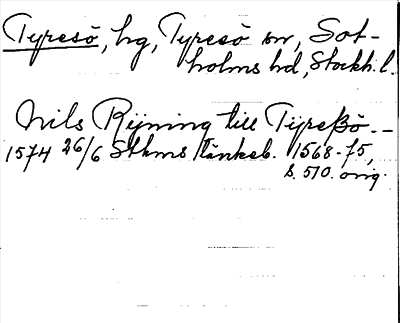 Tyresö, hg, Tyresö sn, Sot-
holms hd, Stockh. l.
Nils Rijning till Tijreßö. —
1574 26/6 Sthms tänkeb. 1568-75,
s. 510. orig.